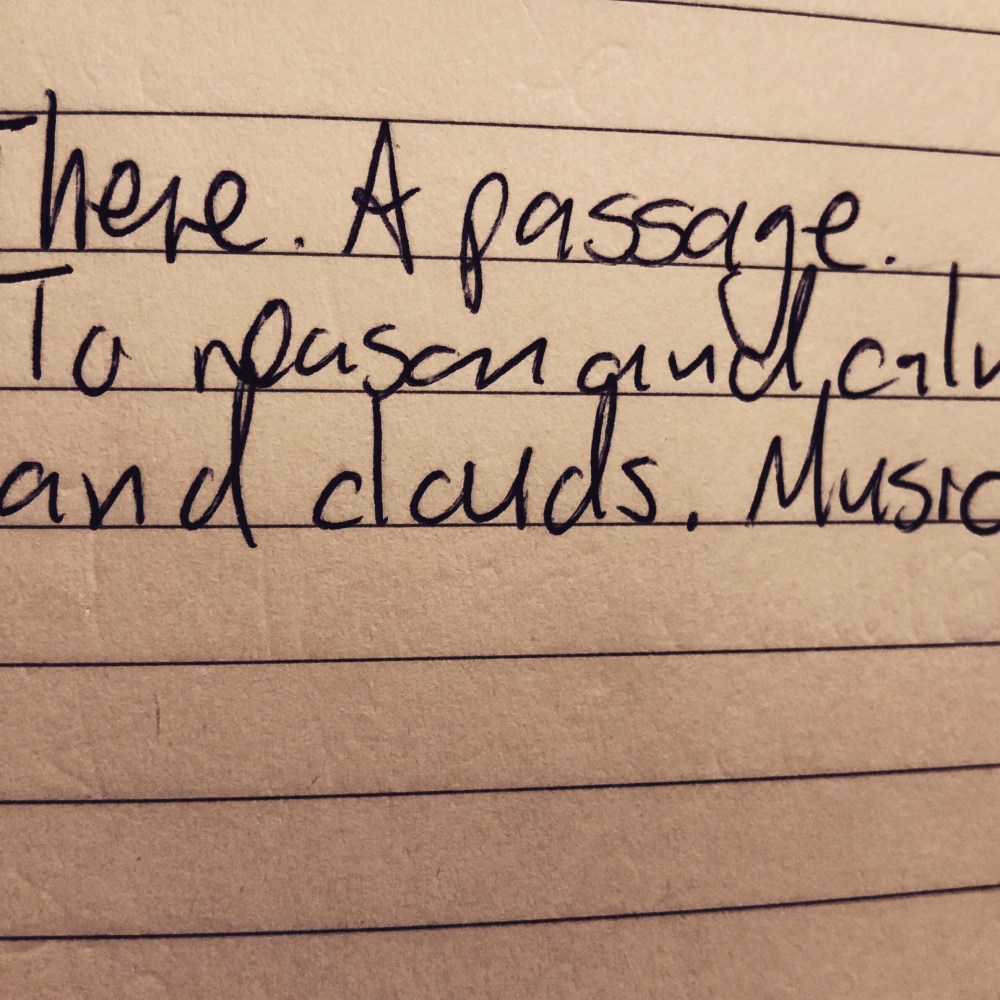 There. A passage.
To reason and, calm
and clouds. Music